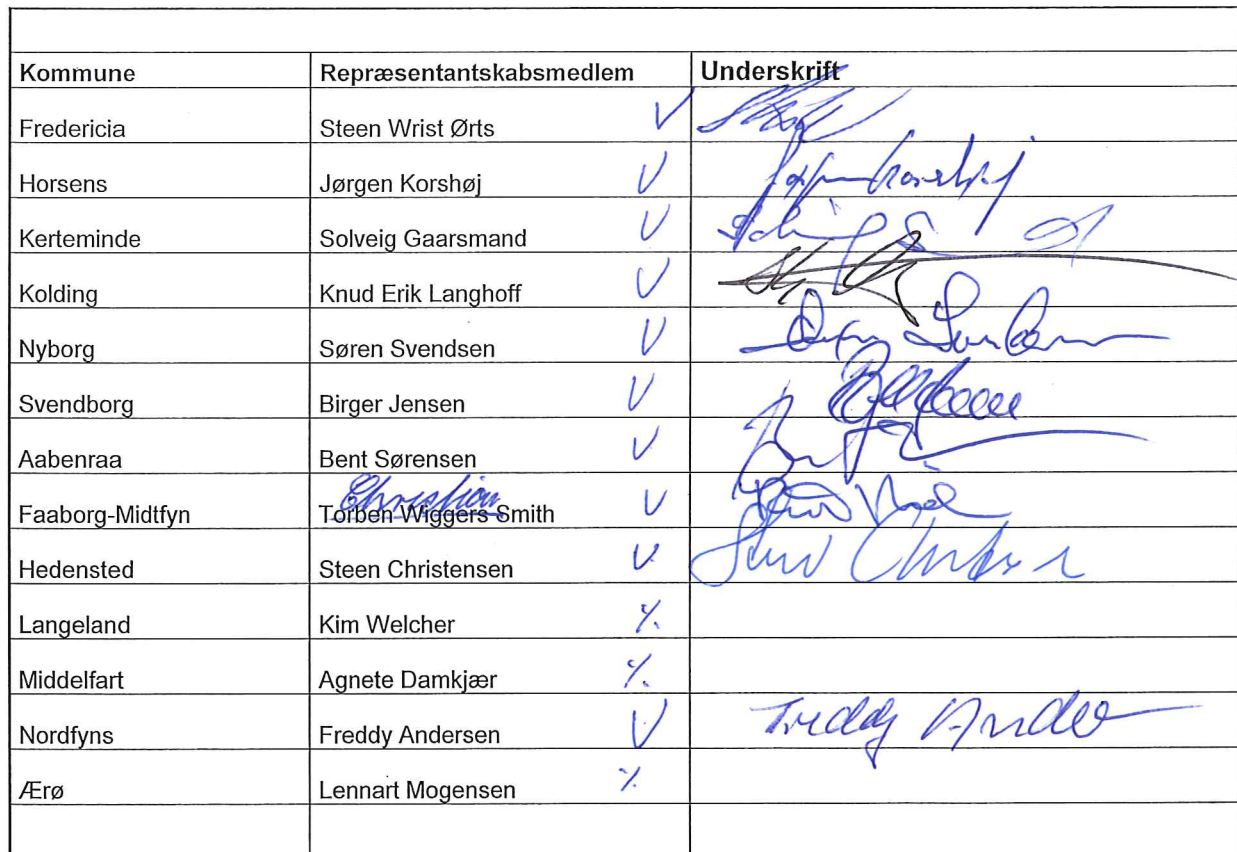 Kommune Repræsentantskabsmedlem Underskrift
Fredericia Steen Wrist Ørts V
Horsens Jørgen Korshøj V
Kerteminde Solveig Gaarsmand V
Kolding Knud Erik Langhoff V
Nyborg Søren Svendsen V
Svendborg Birger Jensen V
Aabenraa Bent Sørensen V
Christian
Faaborg-Midtfyn Torben Wiggers Smith V
Hedensted Steen Christensen V
Langeland Kim Welcher ٪
Middelfart Agnete Damkjær ٪
Nordfyns Freddy Andersen V Freddy
Ærø Lennart Mogensen ٪